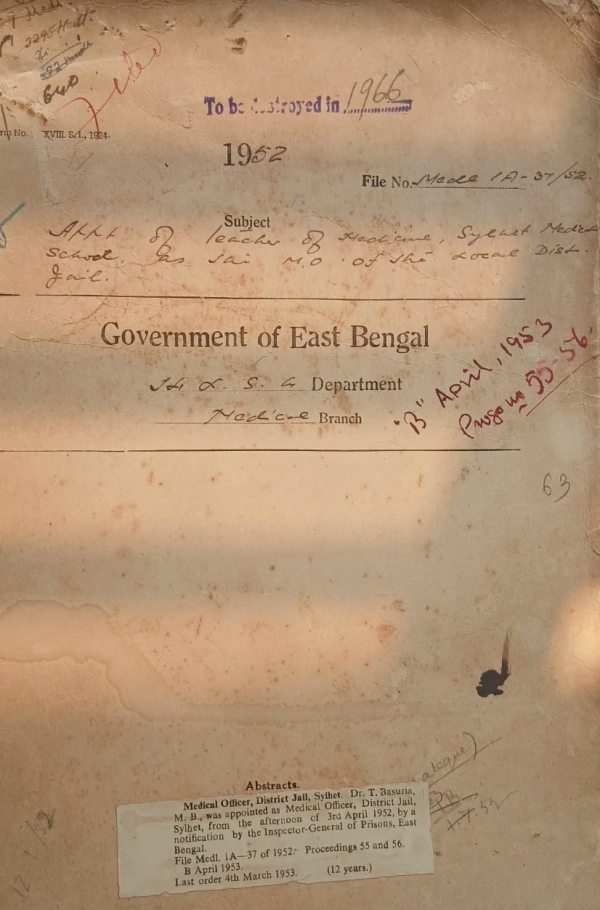 2295 Medl.
640
Filed
To be destroyed in 1966
XVIII. Sch., 1924.
1952
File No. Medl 1A-37/52
Subject
Appt of teacher of Medicine, Sylhet Medical
School, as the M.O. of the Local Dist.
Jail.
Government of East Bengal
H & L. S. G Department
Medical Branch
"B" April, 1953
Progs no 55-56.
63
Abstracts.
Medical Officer, District Jail, Sylhet. Dr. T. Basuria,
M. B., was appointed as Medical Officer, District Jail,
Sylhet, from the afternoon of 3rd April 1952, by a
notification by the Inspector-General of Prisons, East
Bengal.
File Medl. 1A—37 of 1952. Proceedings 55 and 56.
B April 1953.
Last order 4th March 1953. (12 years.)